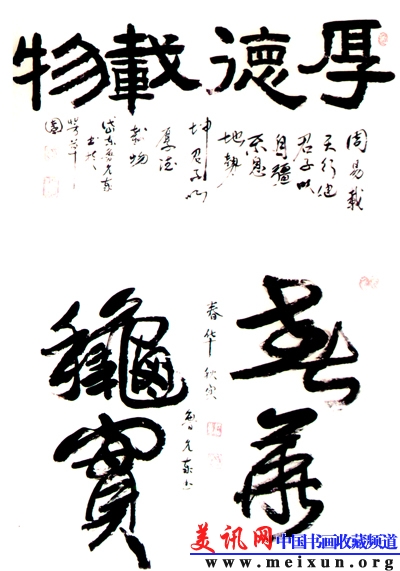 厚德載物
周易載
天行健
君子以
自彊
不息
地勢
坤君子以
厚德
載物
春華
龝實
春华秋实
美讯网 中国书画收藏频道
www.meixun.org